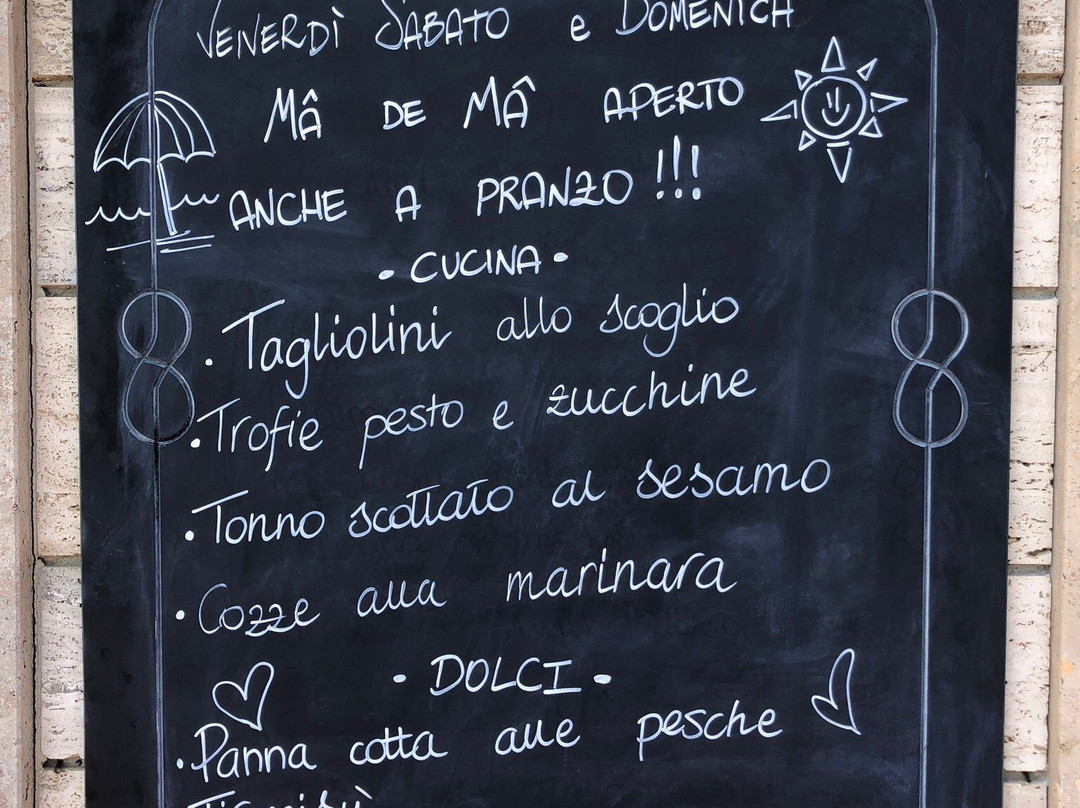 VENERDÌ SABATO e DOMENICA
MÂ DE MÂ APERTO
ANCHE A PRANZO !!!
• CUCINA •
• Tagliolini allo scoglio
• Trofie pesto e zucchine
• Tonno scottato al sesamo
• Cozze alla marinara
• DOLCI •
• Panna cotta alle pesche
Tiramisù